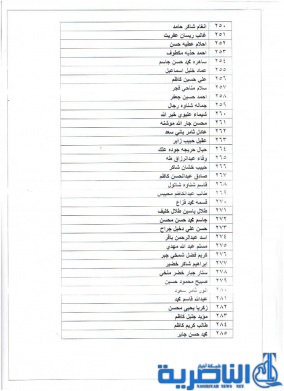 ٢٥٠ انغام شاكر حامد
٢٥١ غالب ريسان عفريت
٢٥٢ احلام عطيه حسن
٢٥٣ احمد حذيه مكطوف
٢٥٤ ساهره كيد حسن جاسم
٢٥٥ عماد خليل اسماعيل
٢٥٦ علي حسين كاظم
٢٥٧ سلام مناحي فجر
٢٥٨ احمد حسين جعفر
٢٥٩ جماله شناوه رجال
٢٦٠ شيماء عليوي خير الله
٢٦١ محسن جار الله موشنه
٢٦٢ عادل ثامر ياسر سعد
٢٦٣ عقيل حبيب زاير
٢٦٤ حبال خريجه جوده عتك
٢٦٥ وفاء عبدالرزاق طه
٢٦٦ حبيب خشان شاكر
٢٦٧ صادق عبدالحسن كاظم
٢٦٨ قاسم شناوه شاتول
٢٦٩ طالب عبدالكاظم محيبس
٢٧٠ قسمه كيد فزاع
٢٧١ طلال ياسين طلال خليف
٢٧٢ جاسم كيد حسن محسن
٢٧٣ حسن علي دخيل جراح
٢٧٤ اسد عبدالرحمن باقر
٢٧٥ مسلم عبد الله مهدي
٢٧٦ كريم فضل شمخي جبر
٢٧٧ ابراهيم شاكر خضير
٢٧٨ ستار جبار خضر منخي
٢٧٩ صبيح محمود حسين
٢٨٠ انور ثامر سعود
٢٨١ عبدالله قاسم كيد
٢٨٢ زكريا يحيى محسن
٢٨٣ مؤيد جليل كاظم
٢٨٤ طالب كريم كاظم
٢٨٥ كيد حسن جابر
شبكة أخبار
الناصرية